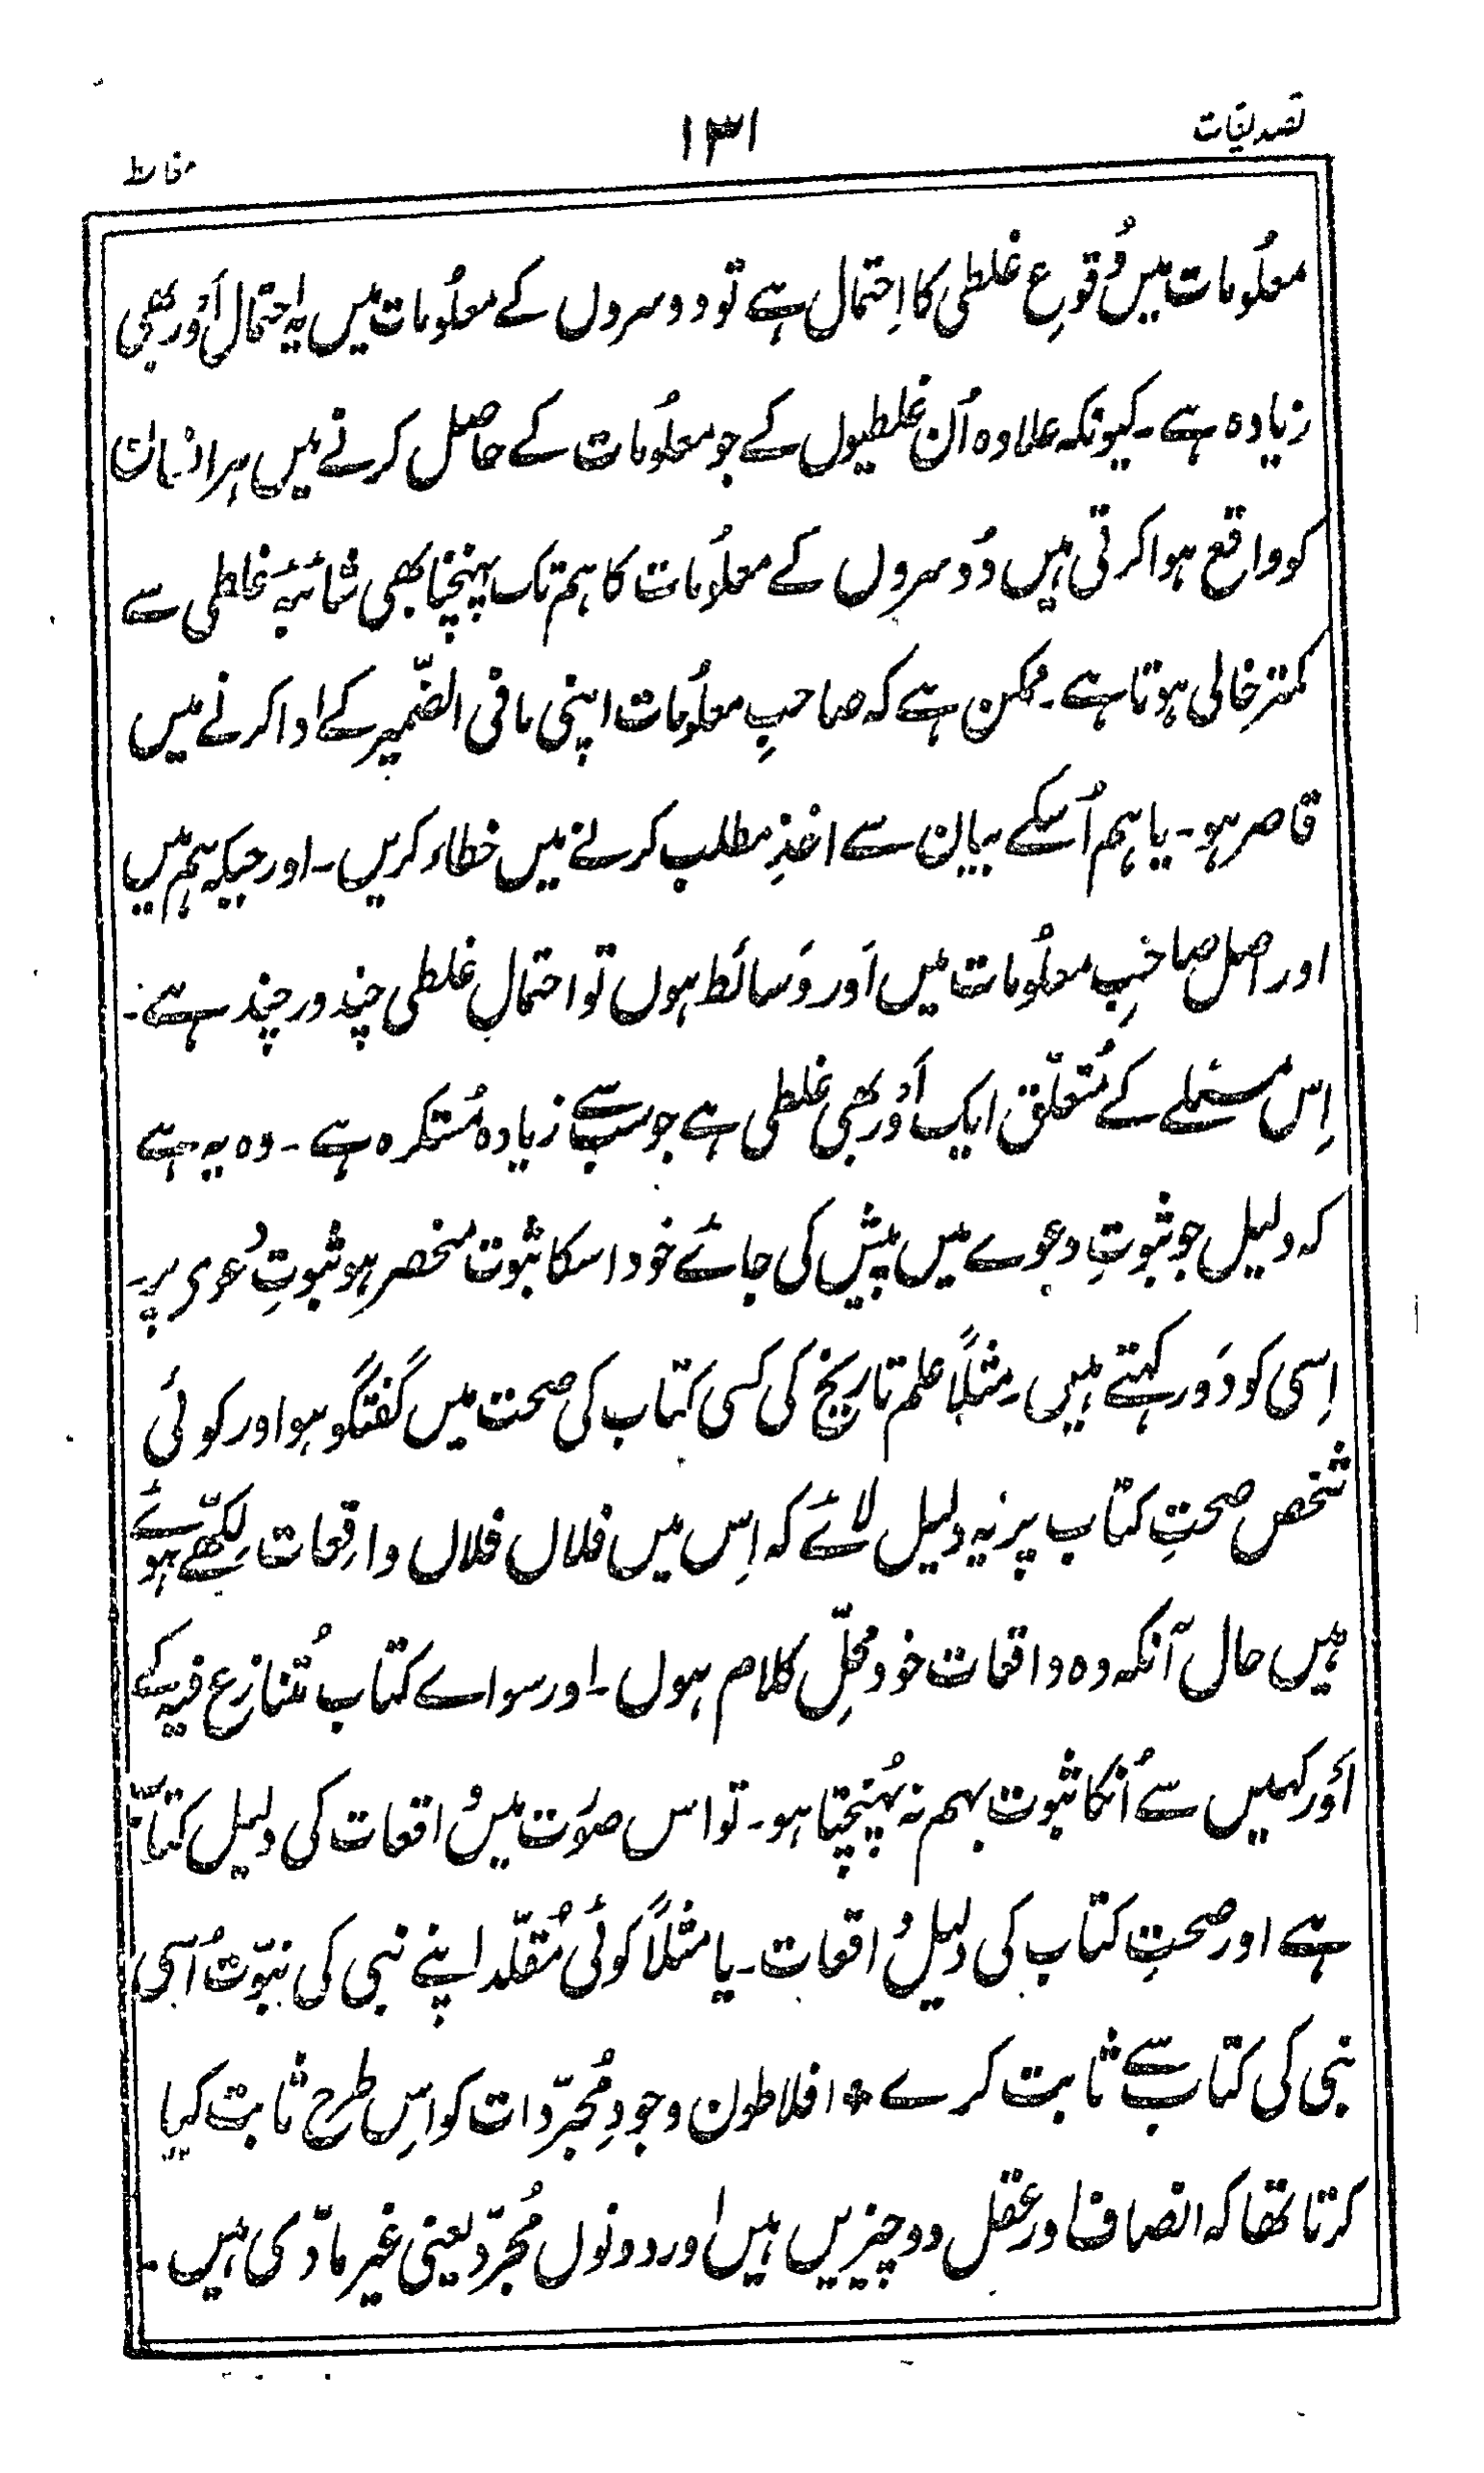 تصدیقات
۱۳۱
معلُومات میں وُقوعِ غلطی کا اِحتمال ہے تو دوسروں کے معلُومات میں یہ احتمال اَوْر بھی
زیادہ ہے۔ کیونکہ علاوہ اُن غلطیوں کے جو معلُومات کے حاصل کرنے میں ہر انسان
کو واقع ہوا کرتی ہیں دُوسروں کے معلُومات کا ہم تک پہنچنا بھی شائبۂ غلطی سے
کمتر خالی ہوتا ہے۔ ممکن ہے کہ صاحبِ معلُومات اپنی ما فی الضّمیر کے ادا کرنے میں
قاصر ہو۔ یا ہم اُسکے بیان سے اخذِ مطلب کرنے میں خطاء کریں۔ اور جبکہ ہم میں
اور اصل صاحبِ معلُومات میں اَور وَسائط ہوں تو احتمالِ غلطی چند در چند ہے۔
اِس مسئلے کے مُتعلّق ایک اَوْر بھی غلطی ہے جو سب سے زیادہ مُستکرہ ہے۔ وہ یہ ہے
کہ دلیل جو ثبوتِ دعوے میں پیش کی جائے خود اسکا ثبوت منحصر ہو ثبوتِ دعوی پر۔
اِسی کو دَور کہتے ہیں۔ مثلاً علم تاریخ کی کسی کتاب کی صحت میں گفتگو ہو اور کوئی
شخص صحتِ کتاب پر یہ دلیل لائے کہ اِس میں فلاں فلاں واقِعات لِکھّے ہوئے
ہیں حال آنکہ وہ واقعات خود محلِّ کلام ہوں۔ اور سواے کتاب مُتنازع فیہ کے
اَوْر کہیں سے اُنکا ثبوت بہم نہ پُہنچتا ہو۔ تو اس صوُرت میں واقعات کی دلیل کتاب
ہے اور صحتِ کتاب کی دلیل واقعات۔ یا مثلاً کوئی مُقلّد اپنے نبی کی نبوّت اُسی
نبی کی کتاب سے ثابت کرے * افلاطون وجودِ مُجرّدات کو اِس طرح ثابت کیا
کرتا تھا کہ انصاف اور عقل دو چیزیں ہیں اور دونوں مُجرّد یعنی غیر مادّی ہیں۔